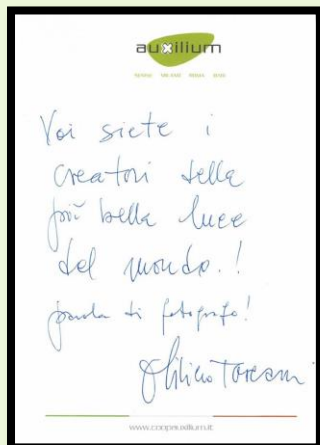 auxilium
Voi siete i
creatori della
più bella luce
del mondo.!
parola di fotografo!
Toscani
www.coopauxilium.it